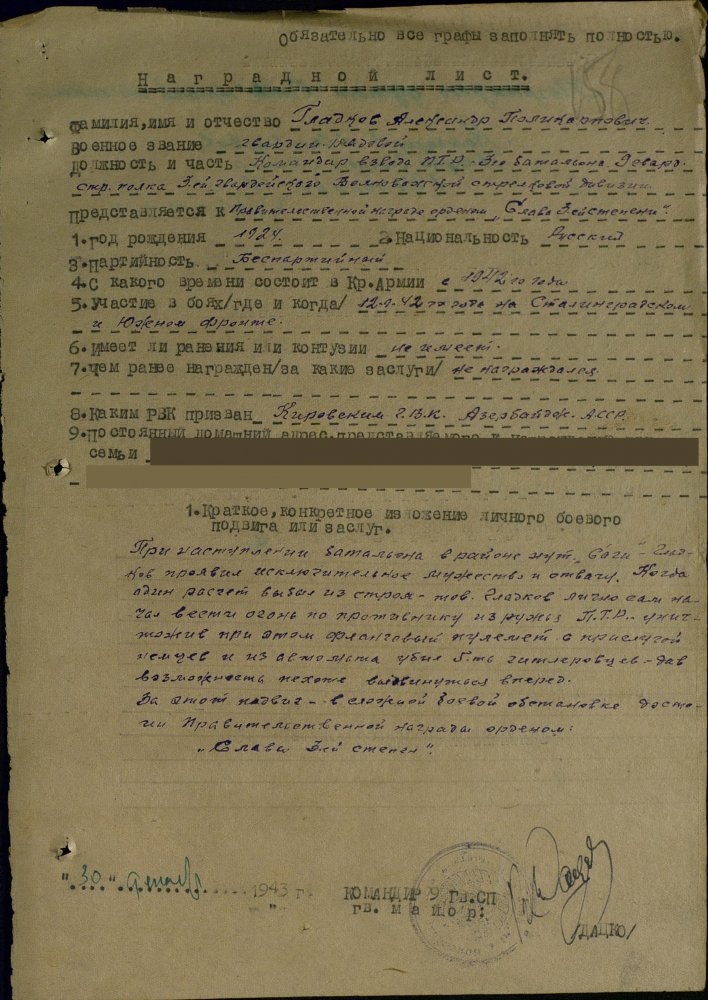 Обязательно все графы заполнять полностью.
154
Наградной лист.
Фамилия, имя и отчество Гладков Александр Поликарпович
Военное звание гвардии-рядовой
Должность и часть Командир взвода П.Т.Р. 3го батальона 9 гвард.
стр. полка 3ей гвардейского Волновахской стрелковой дивизии
Представляется к Правительственной награде орденом "Слава 3ей степени".
1. год рождения 1924. 2. Национальность Русский
3. Партийность Беспартийный
4. С какого времени состоит в Кр. Армии с 1942 го года
5. Участие в боях/где и когда/ 42 го года на Сталинградском
и Южном фронте.
6. Имеет ли ранения или контузии не имеет.
7. чем ранее награжден/за какие заслуги/ не награждался
8. Каким РВК призван Кировским Г.В.К. Азербайдж. АССР
9. Постоянный домашний адрес, представляемого и
семьи
1. Краткое, конкретное изложение личного боевого
подвига или заслуг.
При наступлении батальона в районе хут. "Саги" - Глад-
ков проявил исключительное мужество и отвагу. Когда
один расчет выбыл из строя - тов. Гладков лично сам на-
чал вести огонь по противнику из ружья П.Т.Р. унич-
тожив при этом фланговый пулемет с прислугой
немцев и из автомата убил 5-ть гитлеровцев - дав
возможность пехоте выдвинуться вперед.
За этот подвиг - в сложной боевой обстановке досто-
ин Правительственной награды орденом:
"Слава 3ей степен".
"30" декаб 1943 г.
КОМАНДИР 9 ГВ.СП
гв. майор:
/ДАЦКО/